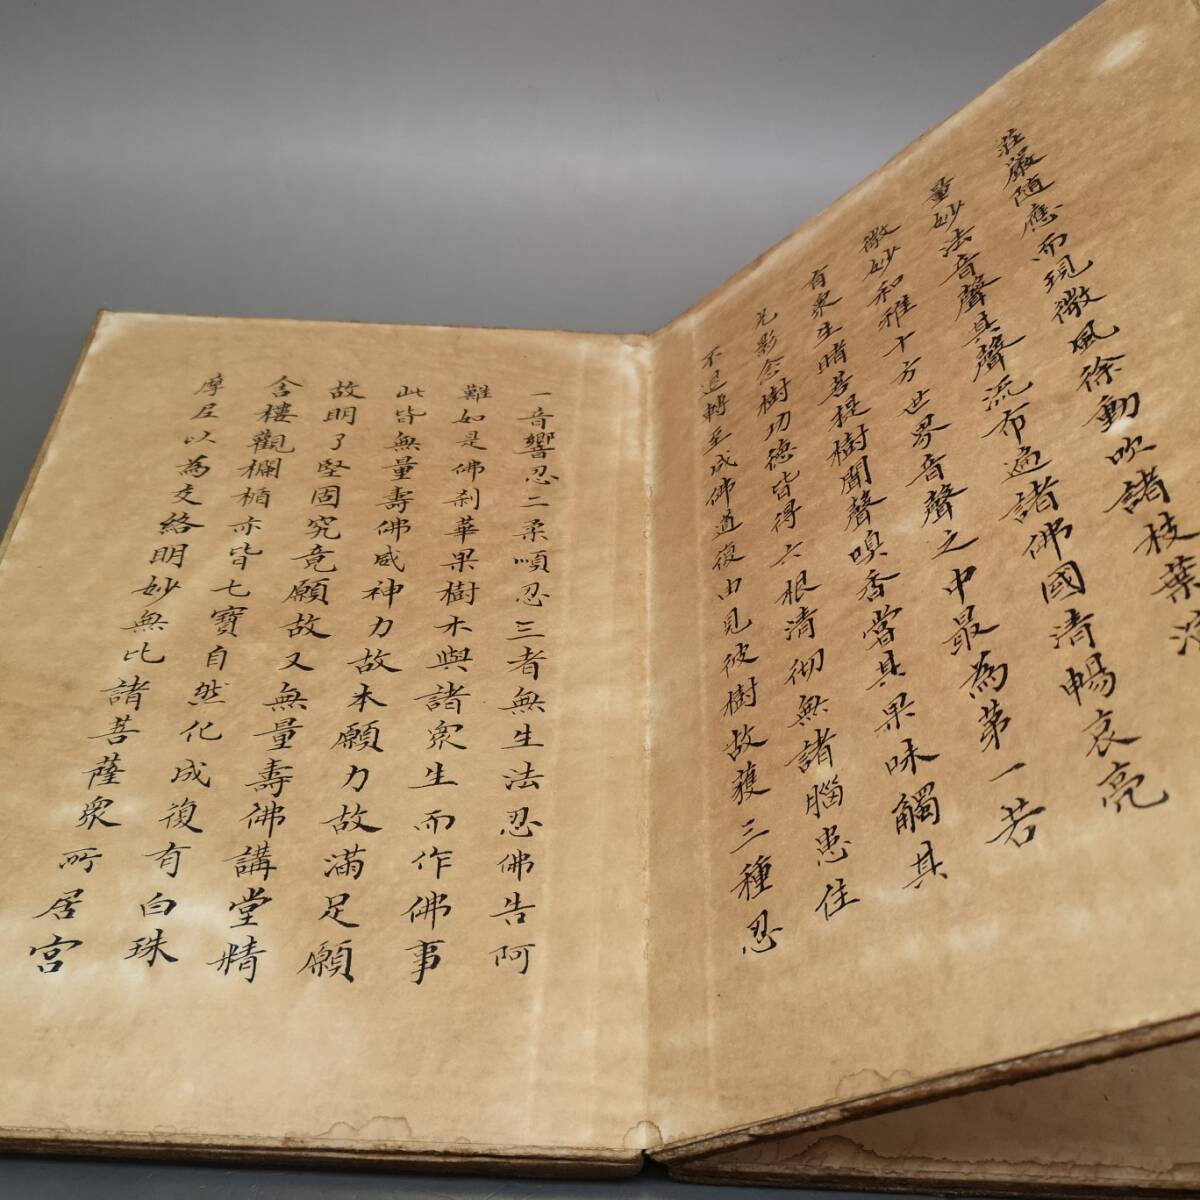 莊嚴隨應而現微風徐動吹諸枝葉演
量妙法音聲其聲流布遍諸佛國清暢哀亮
微妙和雅十方世界音聲之中最為第一若
有衆生睹菩提樹聞聲嗅香嘗其果味觸其
光影念樹功德皆得六根清彻無諸腦患住
不退轉至成佛道復由見彼樹故獲三種忍
一音響忍二柔順忍三者無生法忍佛告阿
難如是佛刹華果樹木與諸衆生而作佛事
此皆無量壽佛威神力故本願力故滿足願
故明了堅固究竟願故又無量壽佛講堂精
舍樓觀欄楯亦皆七寶自然化成復有白珠
摩尼以為交絡明妙無比諸菩薩衆所居宮